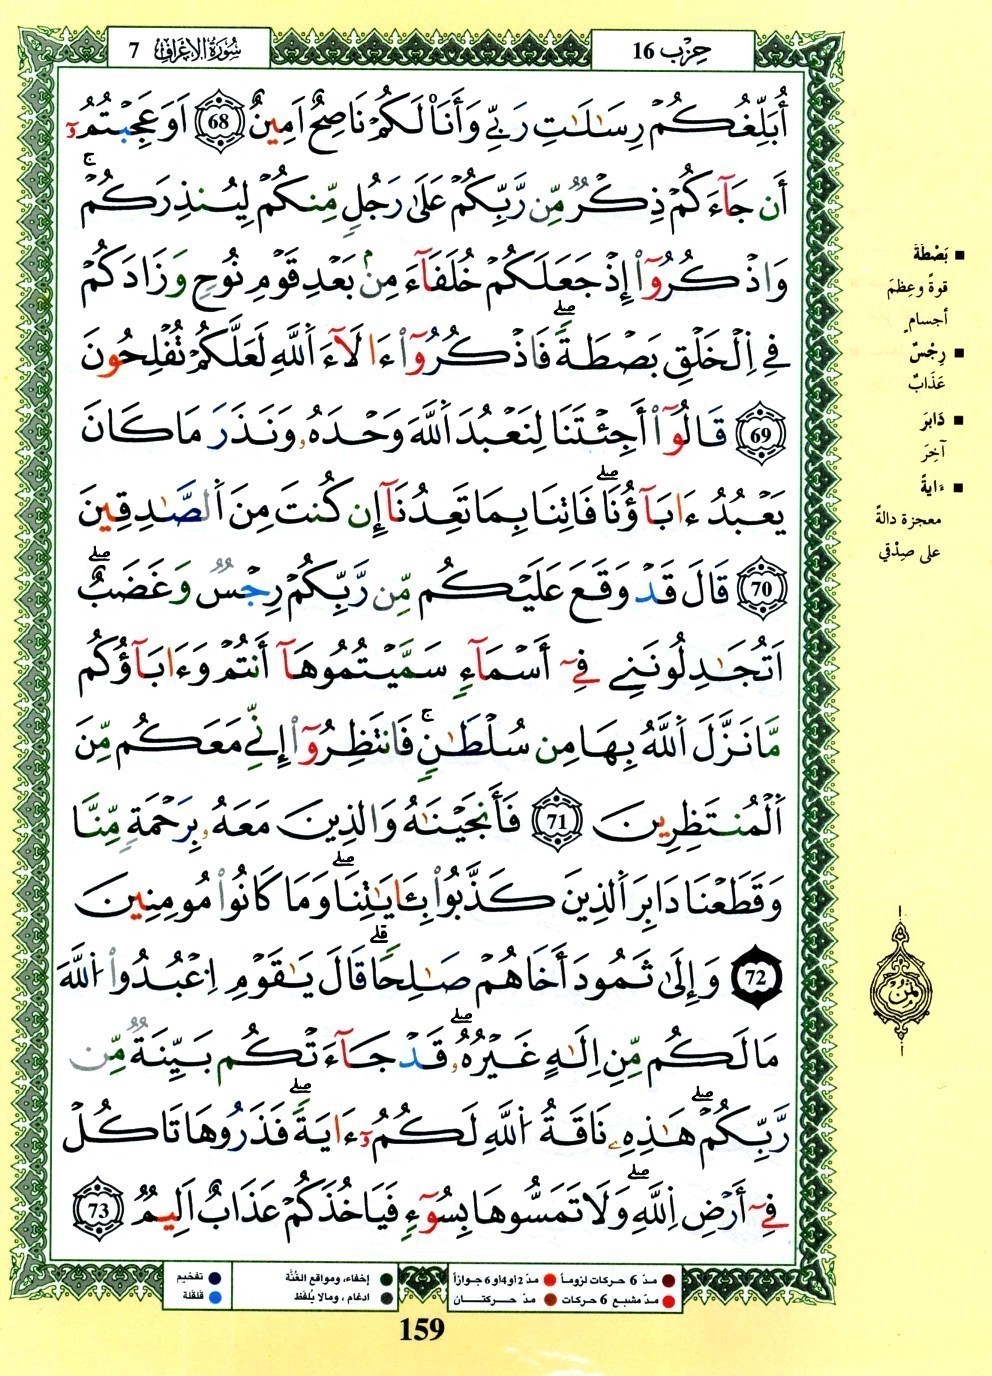 سُورَةُ الأَعْرَافِ 7
حِزْب 16
أُبَلِّغُكُمْ رِسَٰلَٰتِ رَبِّے وَأَنَا۠ لَكُمْ نَاصِحٌ اَمِينٌ 68 اَوَعَجِبْتُمُۥٓ
أَن جَآءَكُمْ ذِكْرٌ مِّن رَّبِّكُمْ عَلَىٰ رَجُلٍ مِّنكُمْ لِيُنذِرَكُمْۚ
وَاذْكُرُوٓا۟ إِذْ جَعَلَكُمْ خُلَفَآءَ مِنۢ بَعْدِ قَوْمِ نُوحٍ وَزَادَكُمْ
فِے اِ۬لْخَلْقِ بَصْطَةًۖ فَاذْكُرُوٓا۟ ءَالَآءَ اَ۬للَّهِ لَعَلَّكُمْ تُفْلِحُونَ
69 قَالُوٓا۟ أَجِئْتَنَا لِنَعْبُدَ اَ۬للَّهَ وَحْدَهُۥ وَنَذَرَ مَا كَانَ
يَعْبُدُ ءَابَآؤُنَاۖ فَاتِنَا بِمَا تَعِدُنَآ إِن كُنتَ مِنَ اَ۬لصَّٰدِقِينَ
70 قَالَ قَدْ وَقَعَ عَلَيْكُم مِّن رَّبِّكُمْ رِجْسٌ وَغَضَبٌۖ
اَتُجَٰدِلُونَنِے فِےٓ أَسْمَآءٍ سَمَّيْتُمُوهَآ أَنتُمْ وَءَابَآؤُكُم
مَّا نَزَّلَ اَ۬للَّهُ بِهَا مِن سُلْطَٰنٍۚ فَانتَظِرُوٓا۟ إِنِّے مَعَكُم مِّنَ
اَ۬لْمُنتَظِرِينَ 71 فَأَنجَيْنَٰهُ وَالذِينَ مَعَهُۥ بِرَحْمَةٍ مِّنَّا
وَقَطَعْنَا دَابِرَ اَ۬لذِينَ كَذَّبُوا۟ بِـَٔايَٰتِنَاۖ وَمَا كَانُوا۟ مُومِنِينَ
72 وَإِلَىٰ ثَمُودَ أَخَاهُمْ صَٰلِحاًۗ قَالَ يَٰقَوْمِ اِ۟عْبُدُوا۟ اُ۬للَّهَ
مَا لَكُم مِّنِ اِلَٰهٍ غَيْرُهُۥۖ قَدْ جَآءَتْكُم بَيِّنَةٌ مِّن
رَّبِّكُمْۖ هَٰذِهِۦ نَاقَةُ اُ۬للَّهِ لَكُمُۥٓ ءَايَةًۖ فَذَرُوهَا تَاكُلْ
فِےٓ أَرْضِ اِ۬للَّهِۖ وَلَا تَمَسُّوهَا بِسُوٓءٍ فَيَاخُذَكُمْ عَذَابٌ اَلِيمٌ 73
بَصْطَةً
قوةً وعِظَمَ
أجسامٍ
رِجْسٌ
عَذَابٌ
دَابِرَ
آخِرَ
ءَايةً
معجزة دالةً
على صِدْقي
ثُمُن
مدّ 6 حركات لزوماً
مدّ 2 أو 4 أو 6 جوازاً
إخفاء، ومواقع الغُنَّة
تفخيم
مدّ مشبع 6 حركات
مدّ حركتان
ادغام ، ومالا يُلفَظ
قلقلة
159